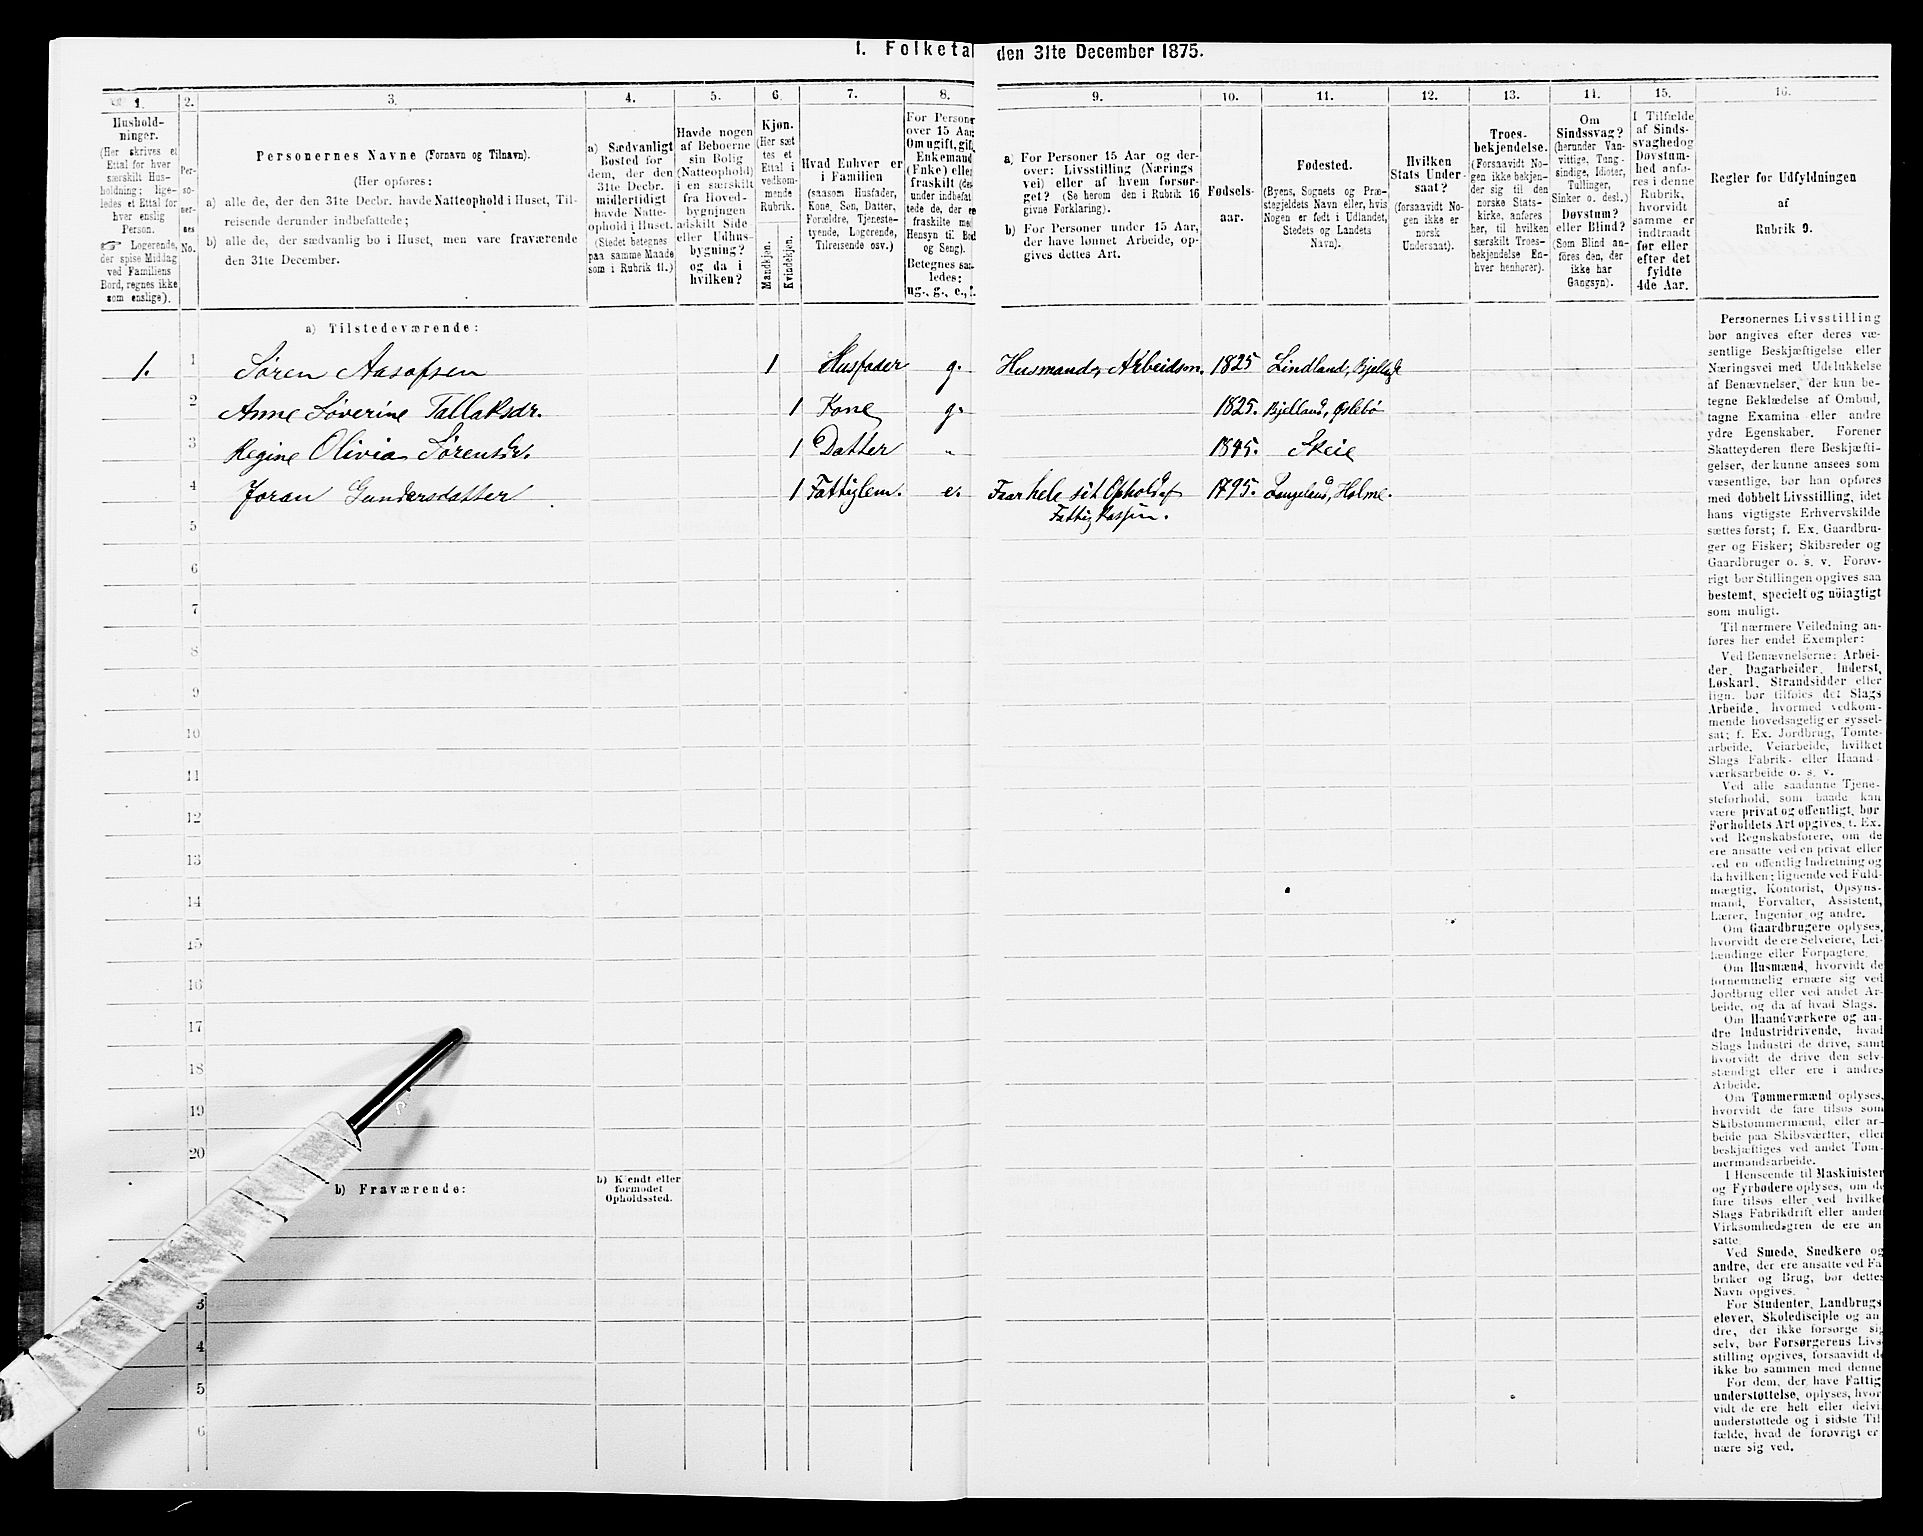 1. Folketa den 31te December 1875.
1. 2. 3. 4. 5. 6. 7. 8. 9. 10. 11. 12. 13. 14. 15. 16.
Hushold-
ninger.
(Her skrives et
Ettal for hver
særskilt Hus-
holdning; lige-
ledes et Ettal for
hver enslig
Person.
☞ Logerende,
der spise Middag
ved Familiens
Bord, regnes ikke
som enslige).
Per-
so-
ner-
nes
No.
Personernes Navne (Fornavn og Tilnavn).
(Her opføres:
a) alle de, der den 31te Decbr. havde Natteophold i Huset, Til-
reisende derunder indbefattede;
b) alle de, der sædvanlig bo i Huset, men vare fraværende
den 31te December.
a) Sædvanligt
Bosted for
dem, der den
31te Decbr.
midlertidigt
havde Natte-
ophold i Huset.
(Stedet betegnes
paa samme Maade
som i Rubrik 11.)
Havde nogen
af Beboerne
sin Bolig
(Natteophold)
i en særskilt
fra Hoved-
bygningen
adskilt Side
eller Udhus-
bygning?
og da i
hvilken?
Kjøn.
(Her sæt
tes et
Ettal i
vedkom-
mende
Rubrik.
Mandkjøn.
Kvindekjøn.
Hvad Enhver er
i Familien
(saasom Husfader,
Kone, Søn, Datter,
Forældre, Tjeneste-
tyende, Logerende,
Tilreisende osv.)
For Person
over 15 Aar
Om ugift, gif
Enkemand
(Enke) elle
fraskilt (de
under indbefat
tede de, der e
fraskilte me
Hensyn til Bo
og Seng).
Betegnes saa
ledes:
ug., g., e., f.
a) For Personer 15 Aar og der-
over: Livsstilling (Nærings
vei) eller af hvem forsør-
get? (Se herom den i Rubrik 16
givne Forklaring).
b) For Personer under 15 Aar,
der have lønnet Arbeide, op-
gives dettes Art.
Fødsels-
aar.
Fødested.
(Byens, Sognets og Præ-
stegjeldets Navn eller, hvis
Nogen er født i Udlandet,
Stedets og Landets
Navn).
Hvilken
Stats Under-
saat?
(forsaavidt No-
gen ikke er
norsk
Undersaat).
Troes-
bekjendelse.
(Forsaavidt No-
gen ikke bekjen-
der sig til den
norske Stats-
kirke, anføres
her, til hvilken
særskilt Troes-
bekjendelse En-
hver henhører).
Om
Sindssvag?
(herunder Van-
vittige, Tung-
sindige, Idioter,
Tullinger,
Sinker o. desl.)
Døvstum?
eller Blind?
(Som Blind an-
føres den, der
ikke har
Gangsyn).
I Tilfælde
af Sinds-
svaghed og
Døvstum-
hed anfø-
res i denne
Rubrik,
hvorvidt
samme er
indtraadt
før eller
efter det
fyldte
4de Aar.
Regler for Udfyldningen
af
Rubrik 9.
a) Tilstedeværende:
1. 1 Søren Aasofsen 1 Husfader g. Husmand, Arbeidsm. 1825 Lindland, Bjelland
2 Anne Søverine Tallaksdr. 1 Kone g. 1825. Bjelland, Øslebø
3 Regine Olivia Sørensdr. 1 Datter „ 1845. Skeie
4 Joran Gundersdatter 1 Fattiglem. e. Faar hele sit Ophold af 1795. Langeland, Holme.
Fattig Kassen.
5
6
7
8
9
10
11
12
13
14
15
16
17
18
19
20
b) Fraværende:
b) Kjendt eller
formodet
Opholdssted.
3
4
5
6
Personernes Livsstilling
bør angives efter deres væ-
sentlige Beskjæftigelse eller
Næringsvei med Udelukkelse
af Benævnelser, der kun be-
tegne Beklædelse af Ombud,
tagne Examina eller andre
ydre Egenskaber. Forener
Skatteyderen flere Beskjæfti-
gelser, der kunne ansees som
væsentlige, bør han opføres
med dobbelt Livsstilling, idet
hans vigtigste Erhvervskilde
sættes først; f. Ex. Gaardbru-
ger og Fisker; Skibsreder og
Gaardbruger o. s. v. Forøv-
rigt bør Stillingen opgives saa
bestemt, specielt og nöiagtigt
som muligt.
Til nærmere Veiledning an-
føres her endel Exempler:
Ved Benævnelserne: Arbei-
der, Dagarbeider, Inderst,
Løskarl, Strandsidder eller
lign. bør tilføies det Slags
Arbeide, hvormed vedkom-
mende hovedsagelig er syssel-
sat; f. Ex. Jordbrug, Tomte-
arbeide, Veiarbeide, hvilket
Slags Fabrik- eller Haand-
værksarbeide o. s. v.
Ved alle saadanne Tjene-
steforhold, som baade kan
være privat og offentligt, bør
Forholdets Art opgives, f. Ex.
ved Regnskabsførere, om de
ere ansatte ved en privat eller
ved en offentlig Indretning og
da hvilken; lignende ved Fuld-
mægtig, Kontorist, Opsyns-
mand, Forvalter, Assistent,
Lærer, Ingeniør og andre.
Om Gaardbrugere oplyses,
hvorvidt de ere Selveiere, Lei-
lændinge eller Forpagtere.
Om Husmænd, hvorvidt de
fornemmelig ernære sig ved
Jordbrug eller ved andet Ar-
beide, og da af hvad Slags.
Om Haandværkere og an-
dre Industridrivende, hvad
Slags Industri de drive, samt
hvorvidt de drive den selv-
stændigt eller ere i andres
Arbeide.
Om Tømmermænd oplyses,
hvorvidt de fare tilsøs som
Skibstømmermænd, eller ar-
beide paa Skibsværfter, eller
beskjæftiges ved andet Tøm-
mermandsarbeide.
I Henseende til Maskinister
og Fyrbødere oplyses, om de
fare tilsøs eller ved hvilket
Slags Fabrikdrift eller anden
Virksomhedsgren de ere an
satte.
Ved Smede, Snedkere og
andre, der ere ansatte ved Fa
briker og Brug, bør dettes
Navn opgives.
For Studenter, Landbrugs
elever, Skoledisciple og an
dre, der ikke forsørge sig
selv, bør Forsørgerens Livs
stilling opgives, forsaavidt de
ikke bo sammen med denne
For dem, der have Fattig
understøttelse, oplyses, hvor
vidt de ere helt eller delvis
understøttede og i sidste Til
fælde, hvad de forøvrigt er
nære sig ved.